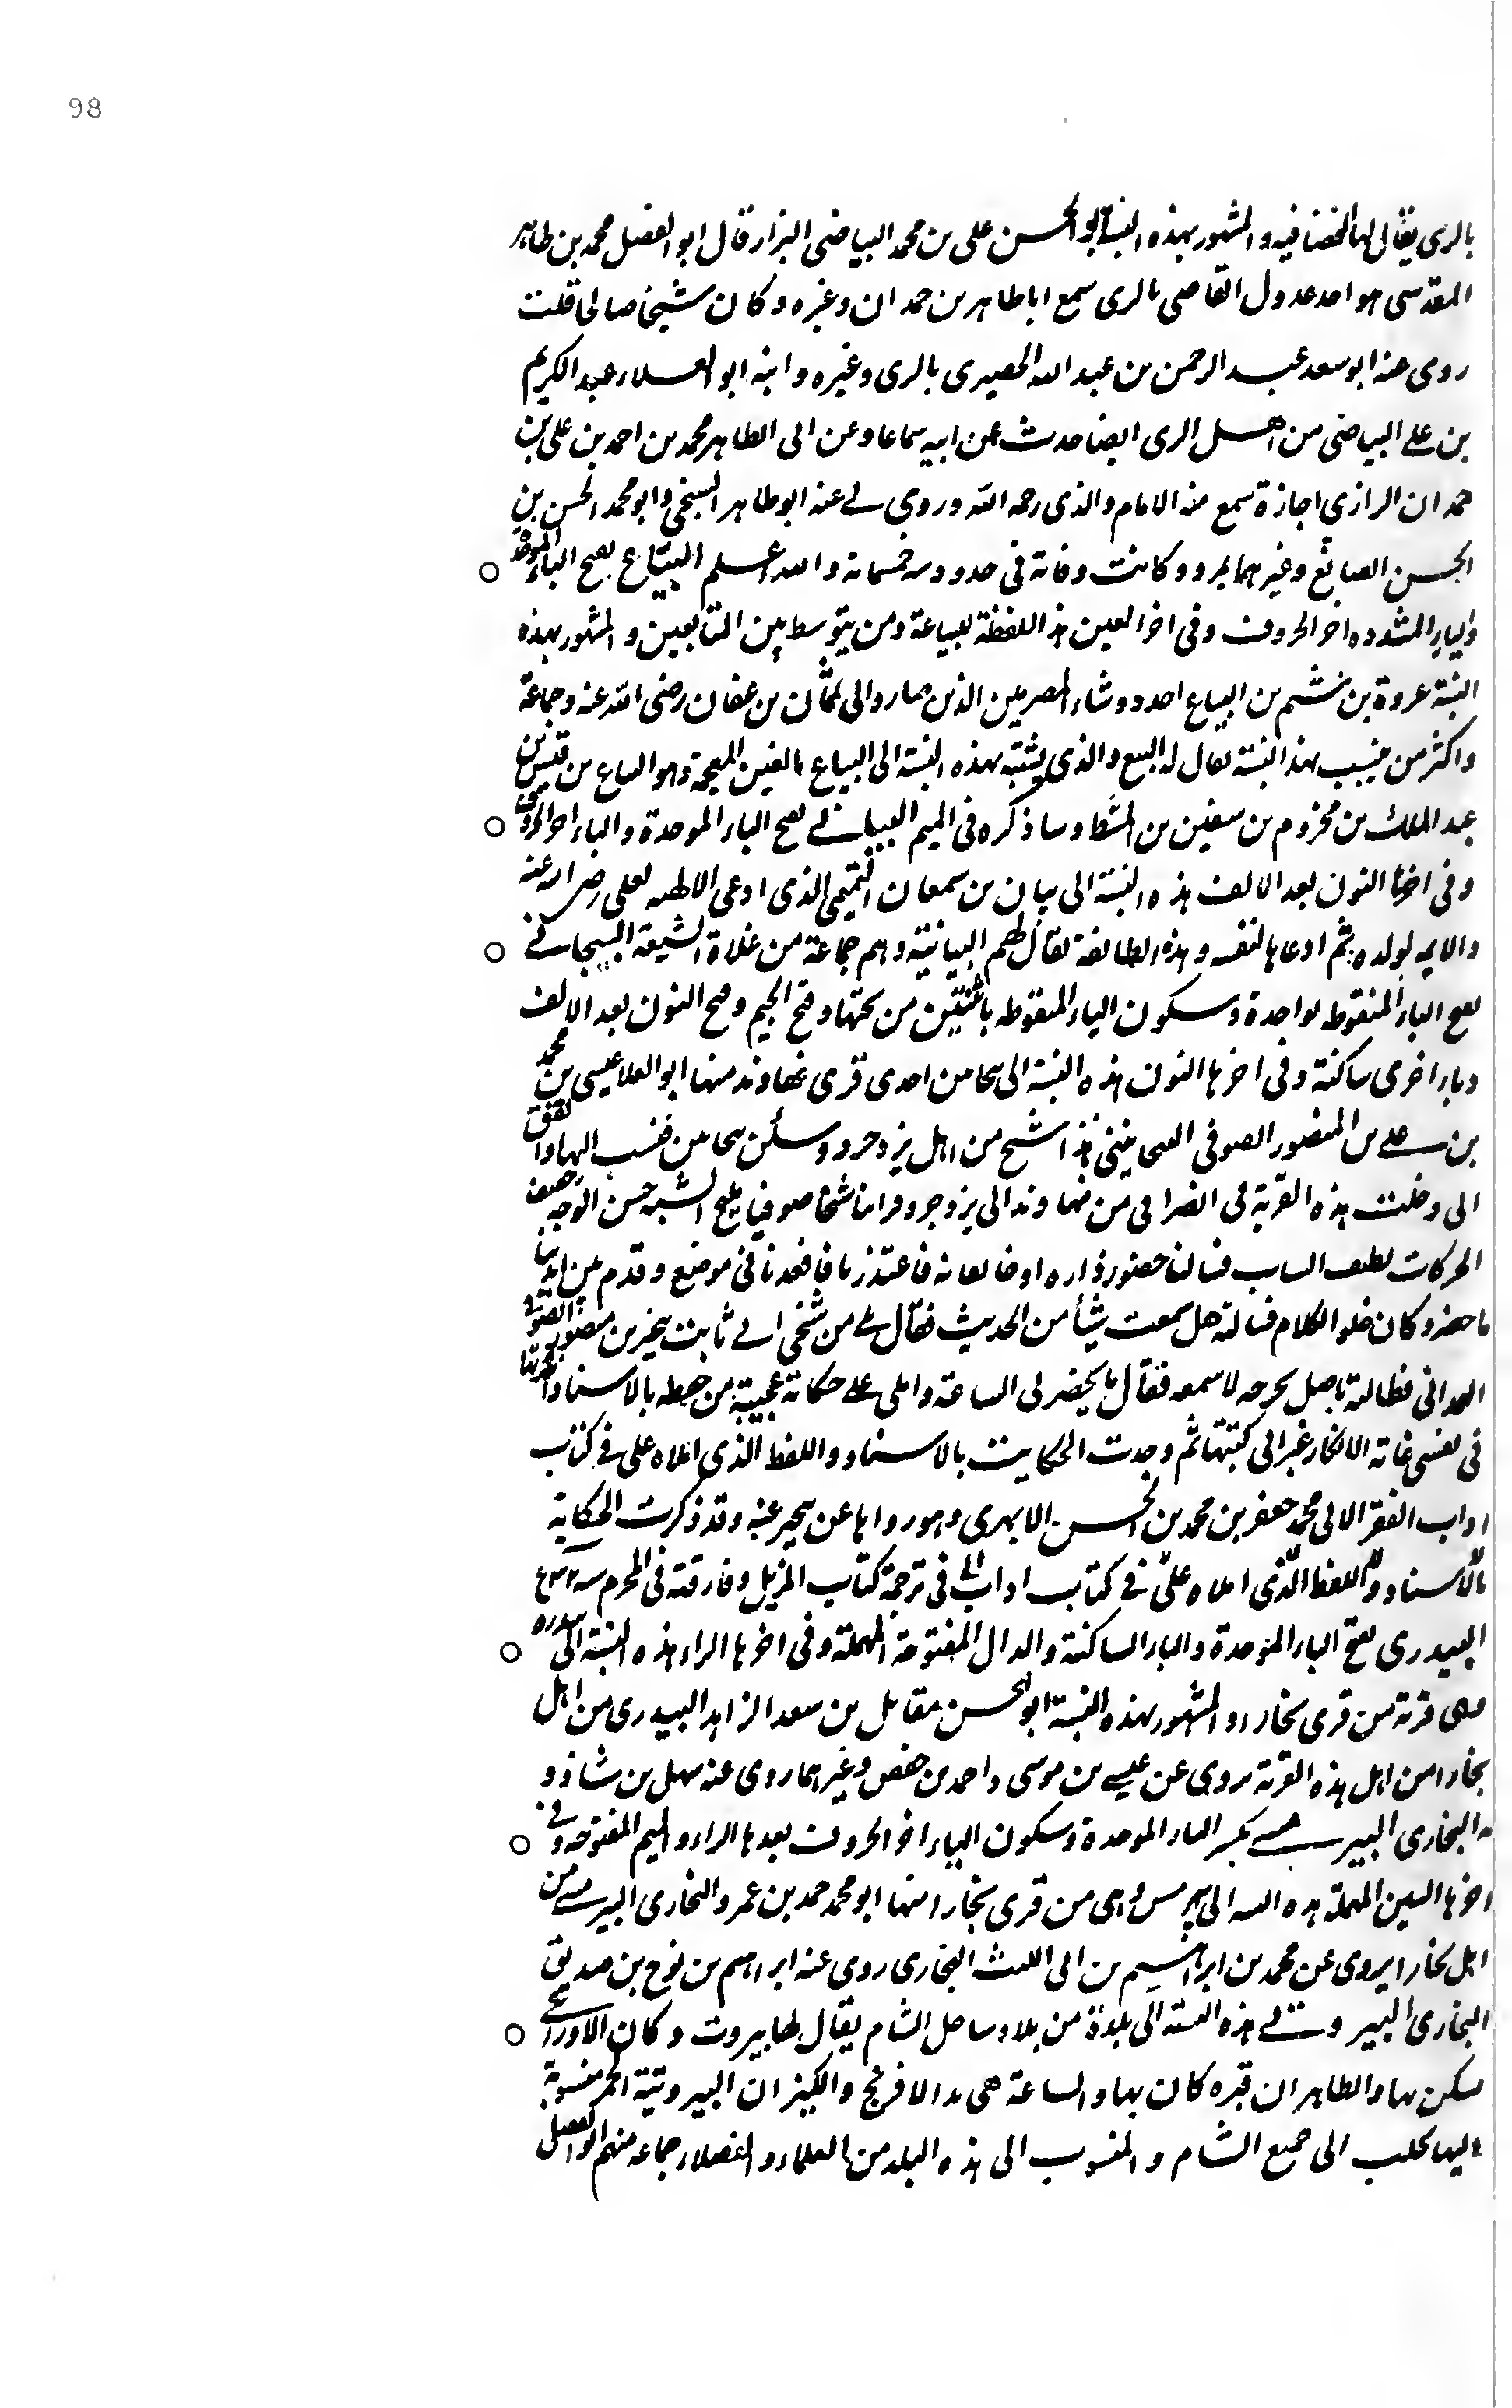 98
بالرى يقال لها الخضافيه والمشهور بهذه النسبة ابو الحسن على بن محمد البياضى البزار قال ابو الفضل محمد بن طاهر
المقدسى هو احد عدول القاضى بالرى سمع اباطاهر بن حمدان وغيره وكان شيخا صالحا قلت
روى عنه ابو سعد عبد الرحمن بن عبد الله الحصيرى بالرى وغيره وابنه ابو العلاء عبد الكريم
بن على البياضى من اهل الرى ايضا حدث عن ابيه سماعا وعن ابى الطاهر محمد بن احمد بن على بن
حمدان الرازي اجازة سمع منه الامام والدى رحمه الله وروى لى عنه ابو طاهر السبخى وابو محمد الحسن بن
الحسن الصايغ وغيرهما بمرو وكانت وفاته فى حدود سنه خمسمائة والله اعلم البيّاع بفتح الباء الموحدة
والياء المشدده اخر الحروف وفى اخر العين هذ اللفظة للبياعة ومن يتوسط بين التابعين والمشهور بهذه
النسبة عروة بن شييم بن البياع احد روساء المصريين الذين صاروا الى عثمان بن عفان رضى الله عنه وجماعة
واكثر من ينسب بهذ النسبة يقال له البيع والذى يشتبه بهذه النسبة الى البياغ بالغين المعجمة وهو البياغ من قيس بن
عبد الملك بن مخزوم بن سفين بن المشظ وساذكره فى الميم البيانى بفتح الباء الموحدة والياء اخر الحروف
وفى اخرها النون بعد الالف هذه النسبة الى بيان بن سمعان التميمى الذى ادعى الالهيه لعلى رضى الله عنه
والايمه لولده ثم ادعاها لنفسه وهذه الطائفة يقال لهم البيانية وهم جماعة من غلاة الشيعة البيجانى
بفتح الباء المنقوطه بواحدة وسكون الياء المنقوطه باثنتين من تحتها وفتح الجيم وفتح النون بعد الالف
وياء اخرى ساكنة وفى اخرها النون هذه النسبة الى بيجانين احدى قرى نهاوند منها ابو العلا عيسى بن محمد
بن على بن المنصور الصوفى البيجانينى هذا شيخ من اهل يزدجرد وسكن بيجانين فنسب اليها واتفق
انى دخلت هذه القرية فى انصرافى من نهاوند الى يزدجرد فراينا شيخا صوفيا مليح الشيبه حسن الوجه خفيف
الحركات نظيف الثياب فسالنا حضور داره او خانقانه فاعتذرنا فاقعدنا فى موضع وقدم بين ايدينا
ما حضر وكان حلو الكلام فسالته هل سمعت شيأ من الحديث فقال لى من شيخى ابى ثابت بنجير بن منصور الصوفى
الهمدانى فطالبته باصل يخرجه لاسمعه فقال ما يحضرنى الساعة واملى على حكاية عجيبة من حفظه بالاسناد
فى نفسى غاية الانكار غير انى كتبتها ثم وجدت الحكايت بالاسناد واللفظ الذى املاه على فى كتاب
اداب الفقرا لابى محمد جعفر بن محمد بن الحسن الابهرى وهو رواها عن بنجير عنه وقد ذكرت الحكاية
بالاسناد واللفظ الذى املاه علىّ فى كتاب اداب فى ترجمة كتاب المزيل وفارقته فى المحرم سنه
البيدرى بفتح الباء الموحدة والياء الساكنة والدال المفتوحة المهملة وفى اخرها الراء هذه النسبة الى بيدره
وهى قرية من قرى بخارا والمشهور بهذه النسبة ابو الحسن مقاتل بن سعد الزاهد البيدرى من اهل
بخارا من اهل هذه القرية يروى عن عيسى بن موسى واحمد بن حفص وغيرهما روى عنه سهل بن شاذو
يه البخارى البيرمسى بكسر الباء الموحدة وسكون الياء اخر الحروف بعدها الراء والميم المفتوحه وفى
اخرها السين المهملة هذه النسبه الى بيرمس وهى من قرى بخارا منها ابو محمد حمد بن عمرو البخارى البيرمسى من
اهل بخارا يروى عن محمد بن ابراهيم بن ابى الليث البخارى روى عنه ابراهيم بن نوح بن صديق
البخارى البيروتى هذه النسبه الى بلدة من بلاد ساحل الشام يقال لها بيروت وكان الاوزاعى
يسكن بها والظاهر ان قبره كان بها والساعة هى بيد الافرنج والكيزان البيروتية الحمر منسوبة
اليها تحلب الى جميع الشام والمنسوب الى هذه البلد من العلماء والفضلاء جماعه منهم ابو الفضل